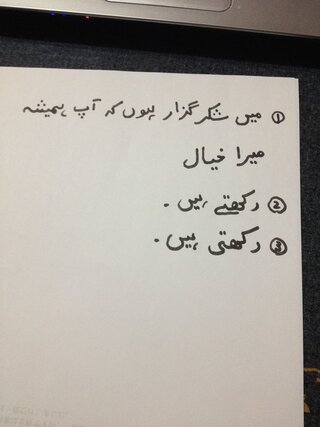 ① میں شکر گزار ہوں کہ آپ ہمیشہ
میرا خیال
② رکھتے ہیں۔
③ رکھتی ہیں۔